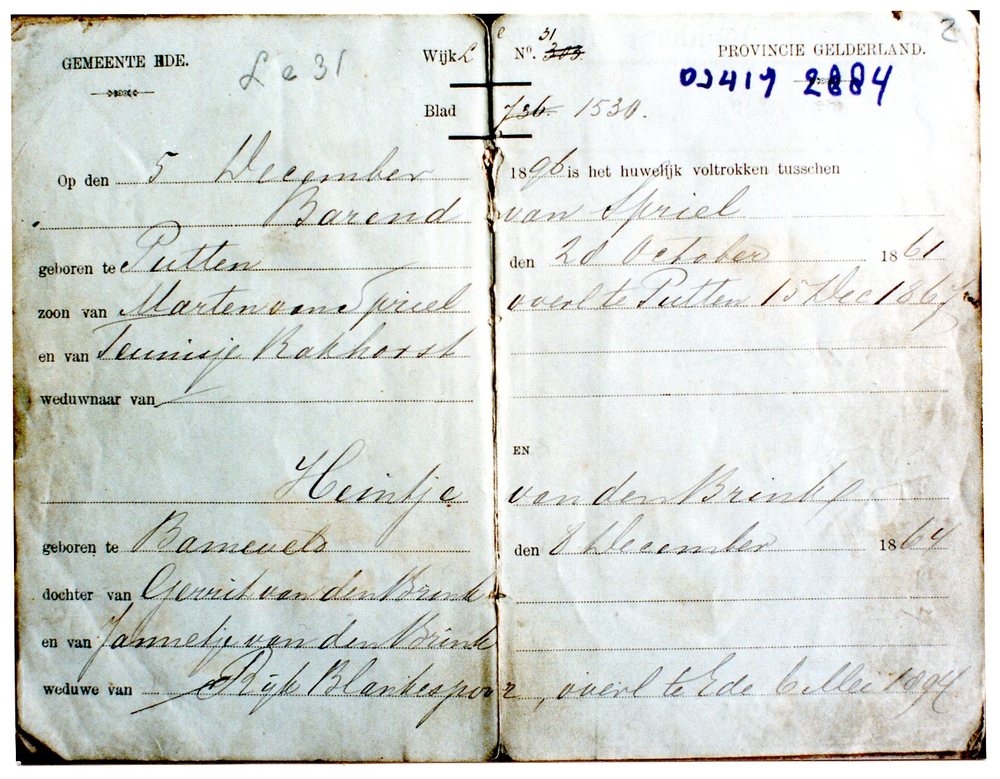 2
GEMEENTE EDE. Wijk L e No. 31 303 PROVINCIE GELDERLAND.
L e 31 05417 2884
Blad 736. 1530.
Op den 5 December 1896 is het huwelijk voltrokken tusschen
Barend van Spriel
geboren te Putten den 20 October 1861
zoon van Marten van Spriel overl te Putten 15 Dec 1867
en van Teunisje Bakhorst
weduwnaar van
EN
Heintje van den Brink
geboren te Barneveld den 8 December 1864
dochter van Gerrit van den Brink
en van Jannetje van den Brink
weduwe van Rijk Blankespoor, overl te Ede 6 Mei 1894